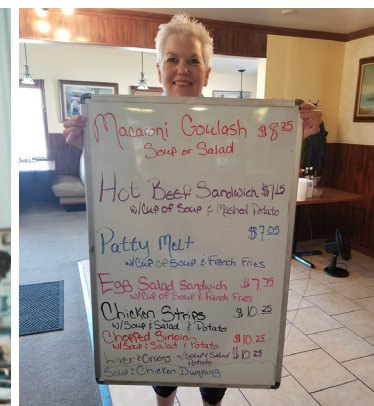 Macaroni Goulash $8.25
Soup or Salad
Hot Beef Sandwich $7.15
w/Cup of Soup & Mashed Potato
Patty Melt $7.05
w/Cup of Soup & French Fries
Egg Salad Sandwich $7.75
w/Cup of Soup & French Fries
Chicken Strips $10.25
w/Soup & Salad & Potato
Chopped Sirloin $10.25
w/Soup & Salad & Potato
Liver & Onions w/Soup & Salad $10.25
Potato
Soup: Chicken Dumpling